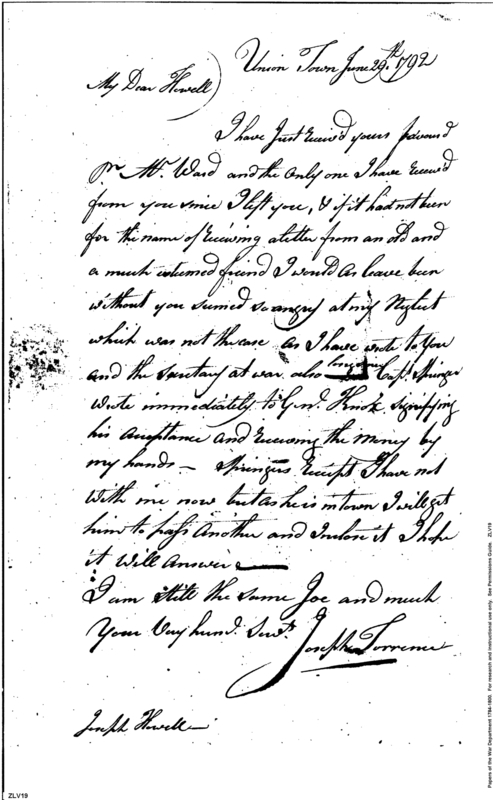 Union Town June 29th. 1792
My Dear Howell
I have Just Receiv'd yours favourd
pr. Mr. Ward and the only one I have Receiv'd
from you since I left you, & if it had not been
for the name of Receiving a letter from an old and
a much esteemed friend I would as leave been
without you seemed so angry at my Neglect
which was not the case as I have wrote to You
and the Secretary at war also long ago Capt. Springer
wrote immediately to Genl. Knox signifying
his acceptance and Receiving the money by
my hands — Springers Receipt I have not
with me now but as he is in town I will get
him to pass another and Inclose it I hope
it will answer —
I am still the same Joe and much
Your Very humb. Servt.
Joseph Torrence
Joseph Howell
Papers of the War Department 1784-1800. For research and instructional use only. See Permissions Guide. ZLV19
ZLV19